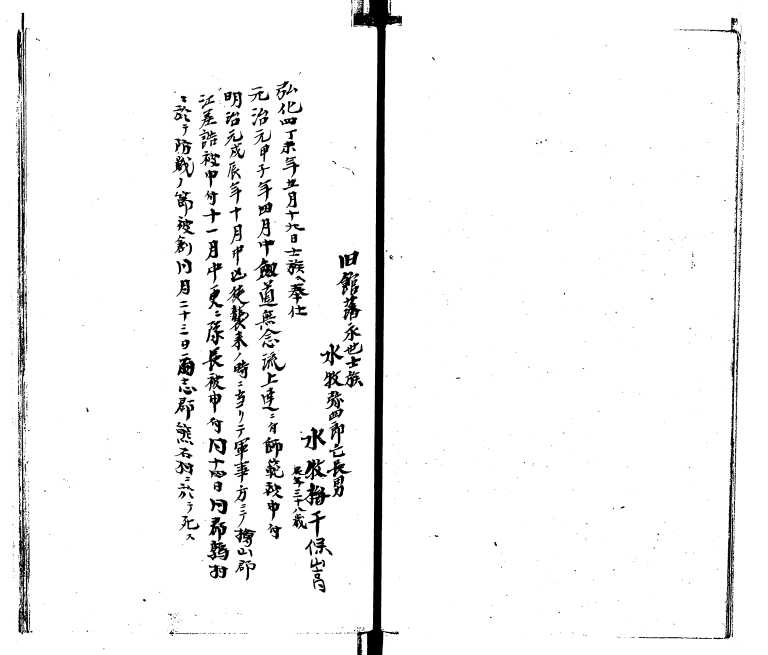 旧館藩永世士族
水牧弥四郎亡長男
水牧梅千保高
死年三十八歳
弘化四丁未年五月十九日士族ヘ奉仕
元治元甲子年四月中劔道無念流上達ニ付師範被申付
明治元戊辰年十月中凶徒襲来ノ時ニ当リテ軍事方ニテ檜山郡
江差詰被申付十一月中更ニ隊長被申付同十四日同郡鶉村
ニ於テ防戦ノ節被創同月二十三日爾志郡熊石村ニ於テ死ス